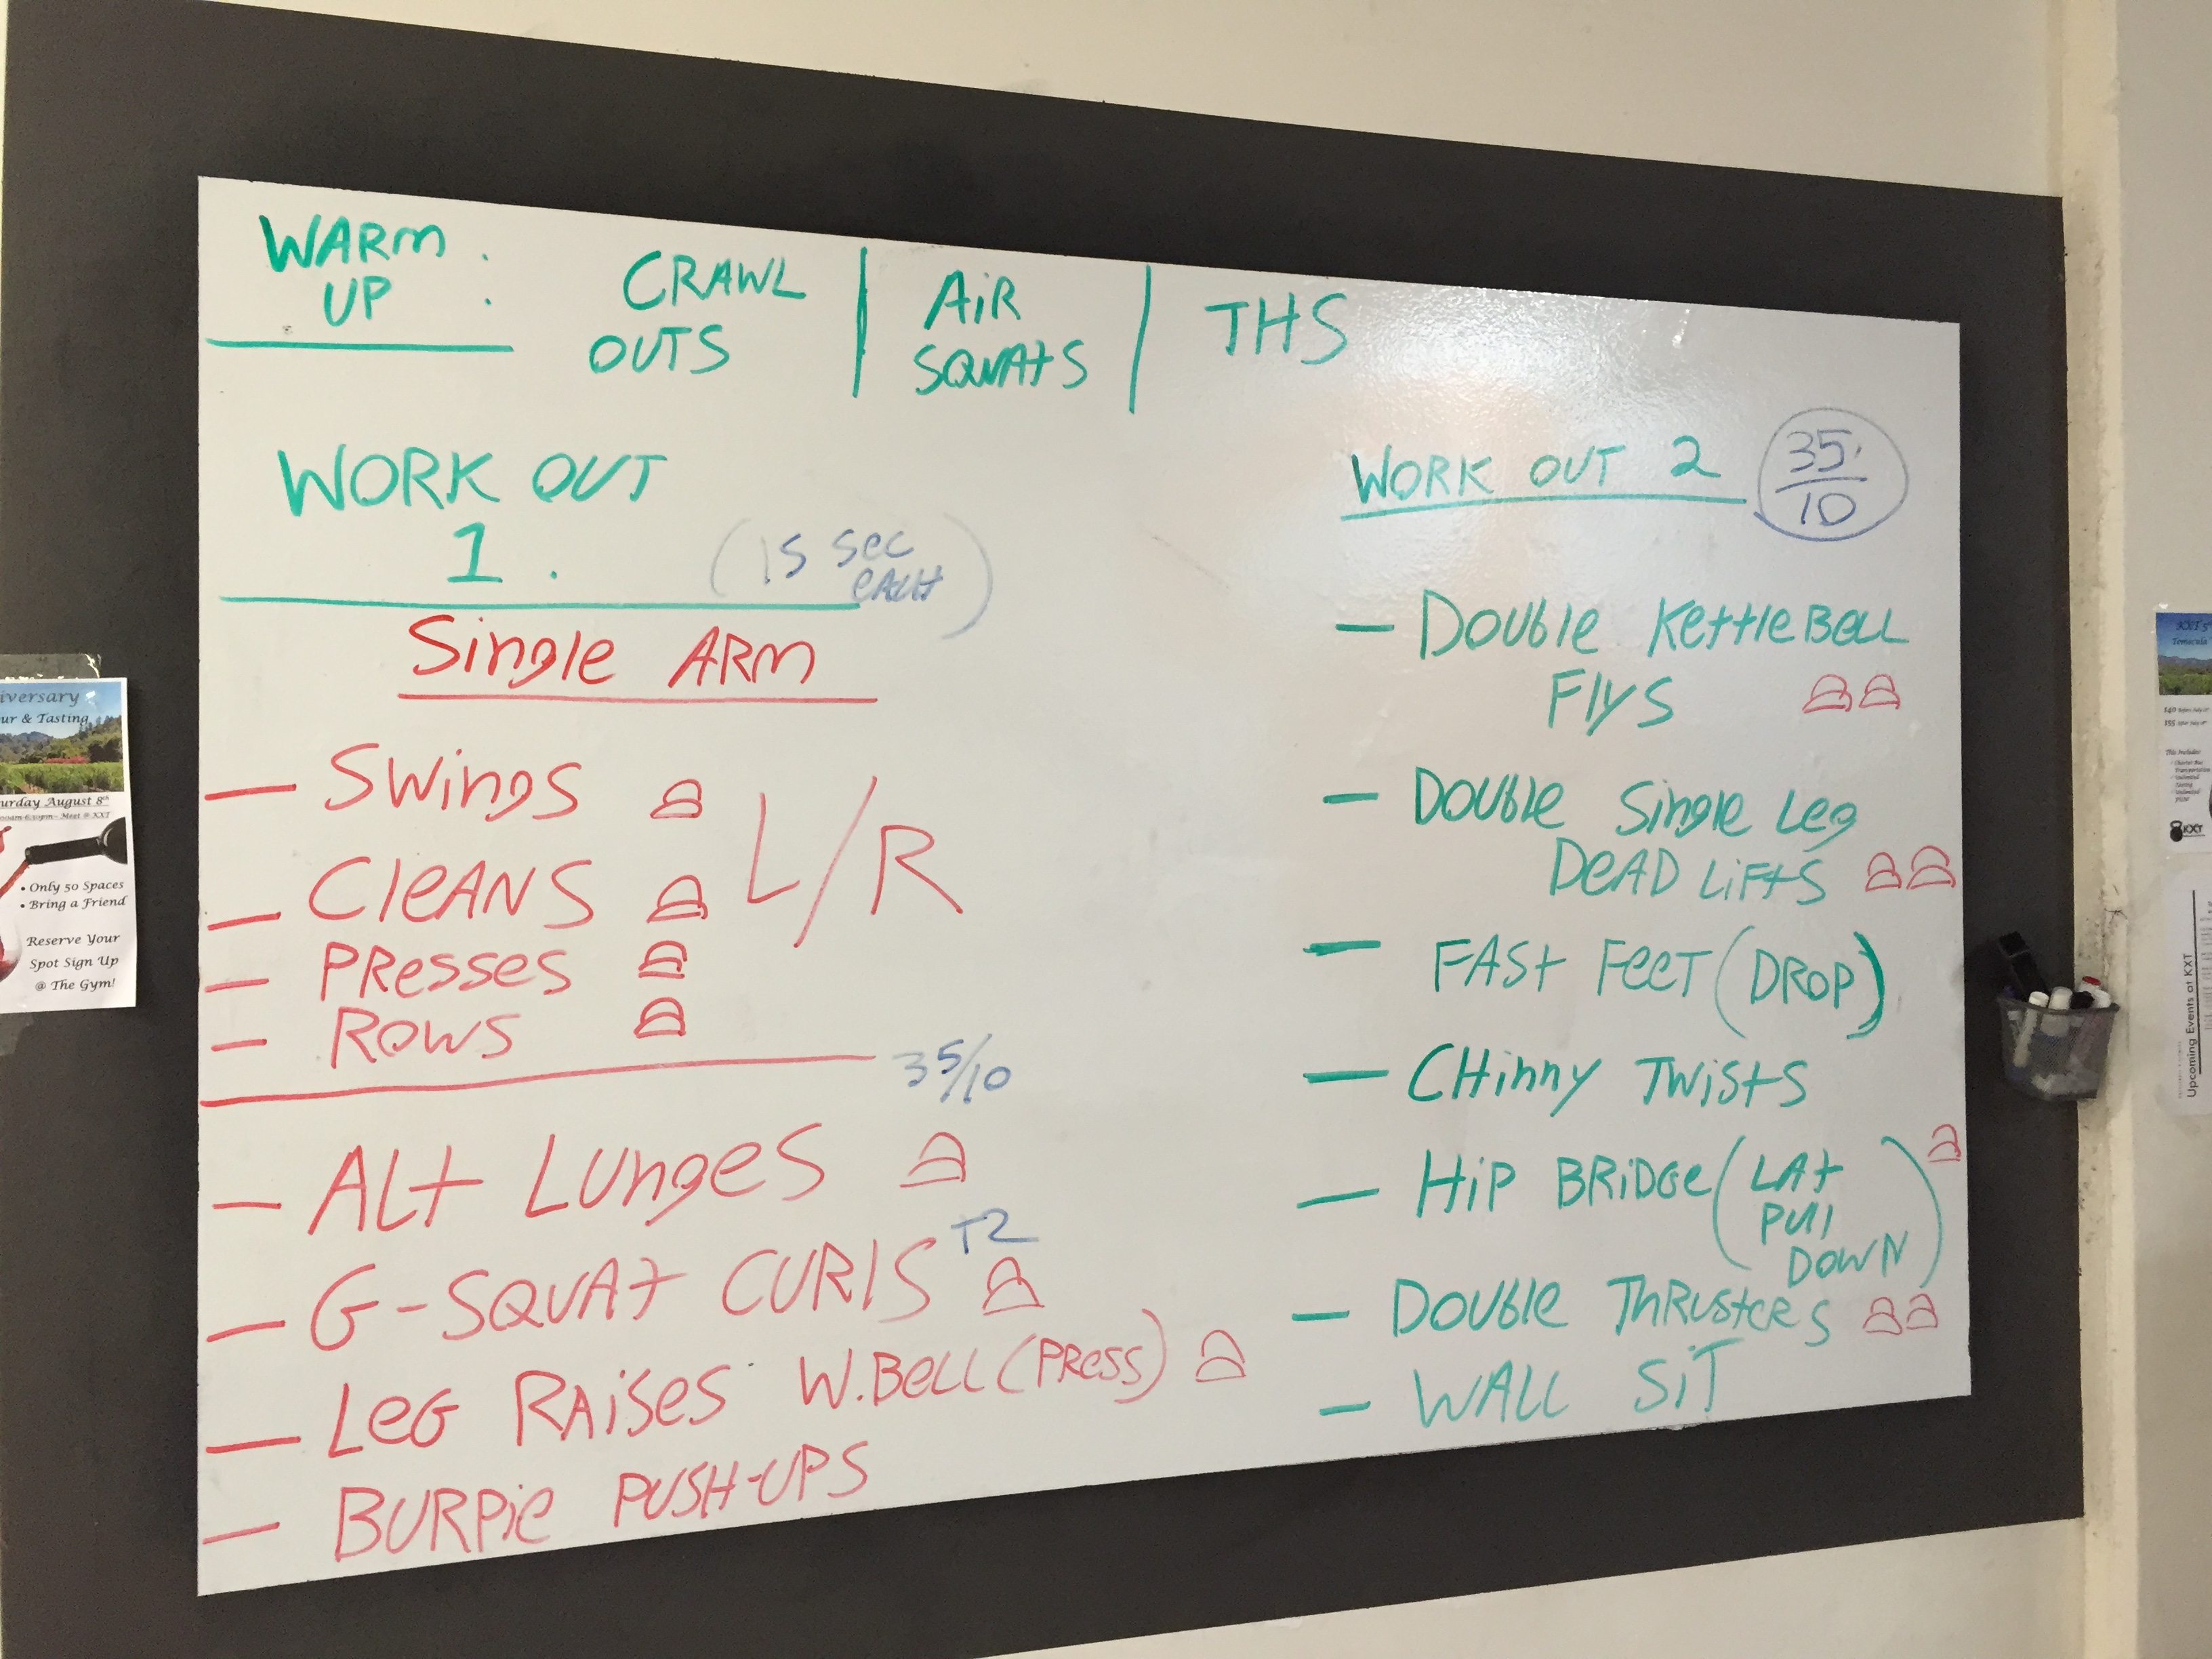 WARM :
UP
CRAWL
OUTS
AiR
SQUATS
THS
WORK OUT
1.
(15 SEC
EACH)
Single ARM
— SWings
— CleANS
— PResses
— ROWS
L/R
35/10
— ALt LUnges
— G-SQUAt CURlS T2
— LeG RAises W.BeLL (PRess)
— BURPie PUSH-UPS
WORK OUT 2
35
10
— DOUble KettleBeLL
Flys
— DOUBle Single Leg
DeAD LiFtS
— FASt FeeT (DROP)
— CHinny TWistS
— HiP BRiDGe (LAt
PUll
DOWN)
— DOUBle ThRusteRS
— WALL SiT
iversary
ur & Tasting
urday August 8th
Meet @ KXT
• Only 50 Spaces
• Bring a Friend
Reserve Your
Spot Sign Up
@ The Gym!
KXT's
Temecula
This Includes:
KXT
Upcoming Events at KXT